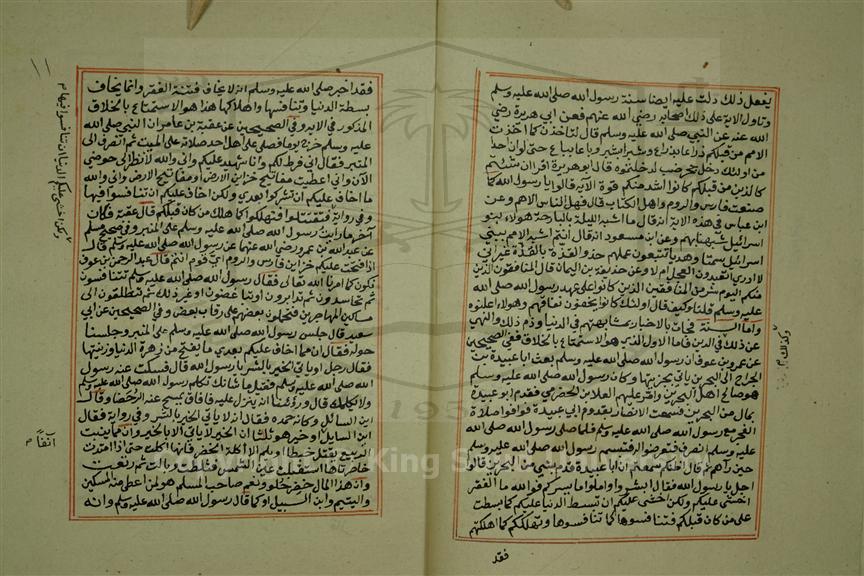 يفعل ذلك دلت عليه ايضا سنة رسول الله صلى الله عليه وسلم
وتاول الاية على ذلك اصحابه رضي الله عنهم فعن ابي هريرة رضي
الله عنه عن النبي صلى الله عليه وسلم قال لتاخذن كما اخذت
الامم من قبلكم ذراعا بذراع وشبرا بشبر وباعا بباع حتى لو ان احدا
من اولئك دخل جحر ضب لدخلتموه قال ابو هريرة اقرا ان شئتم
كالذين من قبلكم كانوا اشد منكم قوة الاية قالوا يا رسول الله كما
صنعت فارس والروم واهل الكتاب قال فهل الناس الا هم وعن
ابن عباس في هذه الاية انه قال ما اشبه الليلة بالبارحة هؤلاء بنو
اسرائيل شبهنا بهم وعن ابن مسعود انه قال انتم اشبه الامم ببني
اسرائيل سمتا وهديا تتبعون عملهم حذو القذة بالقذة غير اني
لا ادري اتعبدون العجل ام لا وعن حذيفة بن اليمان قال المنافقون الذين
منكم اليوم شر من المنافقين الذين كانوا على عهد رسول الله صلى الله
عليه وسلم قلنا وكيف قال اولئك كانوا يخفون نفاقهم وهؤلاء اعلنوه
واما السنة فجاءت بالاخبار بمشابهتهم في الدنيا وذم ذلك والنهي
عن ذلك في الدين فاما الاول الذي هو الاستمتاع بالخلاق ففي الصحيحين
عن عمرو بن عوف ان رسول الله صلى الله عليه وسلم بعث ابا عبيدة بن
الجراح الى البحرين ياتي بجزيتها وكان رسول الله صلى الله عليه وسلم
هو صالح اهل البحرين وامر عليهم العلا بن الحضرمي فقدم ابو عبيدة
بمال من البحرين فسمعت الانصار بقدوم ابي عبيدة فوافوا صلاة
الفجر مع رسول الله صلى الله عليه وسلم فلما صلى رسول الله صلى الله
عليه وسلم انصرف فتعرضوا له فتبسم رسول الله صلى الله عليه وسلم
حين رآهم ثم قال اظنكم سمعتم ان ابا عبيدة قدم بشي من البحرين قالوا
اجل يا رسول الله فقال ابشروا واملوا ما يسركم فوالله ما الفقر
اخشى عليكم ولكن اخشى عليكم ان تبسط الدنيا عليكم كما بسطت
على من كان قبلكم فتنافسوها كما تنافسوها وتهلككم كما اهلكتهم
فقد
وكذلك
١١
فقد اخبر صلى الله عليه وسلم انه لا يخاف فتنة الفقر وانما يخاف
بسطة الدنيا وتنافسها واهلاكها هذا هو الاستمتاع بالخلاق
المذكور في الاية وفي الصحيحين عن عقبة بن عامر ان النبي صلى الله
عليه وسلم خرج يوما فصلى على اهل احد صلاته على الميت ثم انصرف الى
المنبر فقال اني فرط لكم وانا شهيد عليكم واني والله لانظر الى حوضي
الآن واني اعطيت مفاتيح خزاين الارض او مفاتيح الارض واني والله
ما اخاف عليكم ان تشركوا بعدي ولكن اخاف عليكم ان تنافسوا فيها
وفي رواية فتقتتلوا فتهلكوا كما هلك من كان قبلكم قال عقبة فكان
آخر ما رايت رسول الله صلى الله عليه وسلم على المنبر وفي صحيح مسلم
عن عبد الله بن عمرو رضي الله عنها عن رسول الله صلى الله عليه وسلم قال
اذا فتحت عليكم خزاين فارس والروم اي قوم انتم قال عبد الرحمن بن عوف
نكون كما امرنا الله تعالى فقال رسول الله صلى الله عليه وسلم تتنافسون
ثم تحاسدون ثم تدابرون او تباغضون او غير ذلك ثم تنطلقون الى
مساكين المهاجرين فتحملون بعضهم على رقاب بعض وفي الصحيحين عن ابي
سعيد قال جلس رسول الله صلى الله عليه وسلم على المنبر وجلسنا
حوله فقال ان مما اخاف عليكم بعدي ما يفتح من زهرة الدنيا وزينتها
فقال رجل او ياتي الخير بالشر يا رسول الله قال فسكت عنه رسول
الله صلى الله عليه وسلم فقيل ما شانك تكلم رسول الله صلى الله عليه وسلم
ولا يكلمك قال ورؤينا انه ينزل عليه فافاق يمسح عنه الرحضا وقال
اين السائل وكانه حمده فقال انه لا ياتي الخير بالشر وفي رواية فقال
اين السايل او خير هو ثلثا ان الخير لا ياتي الا بالخير وان مما ينبت
الربيع يقتل حبطا او يلم الا آكلة الخضر فانها اكلت حتى اذا امتدت
خاصرتاها استقبلت عين الشمس فثلطت وبالت ثم رتعت
وان هذا المال خضر حلو ونعم صاحب المسلم هو لمن اعطى منه المسكين
واليتيم وابن السبيل او كما قال رسول الله صلى الله عليه وسلم وانه
ولكن اخشى عليكم الدنيا ان تنافسوا فيها
آنفا